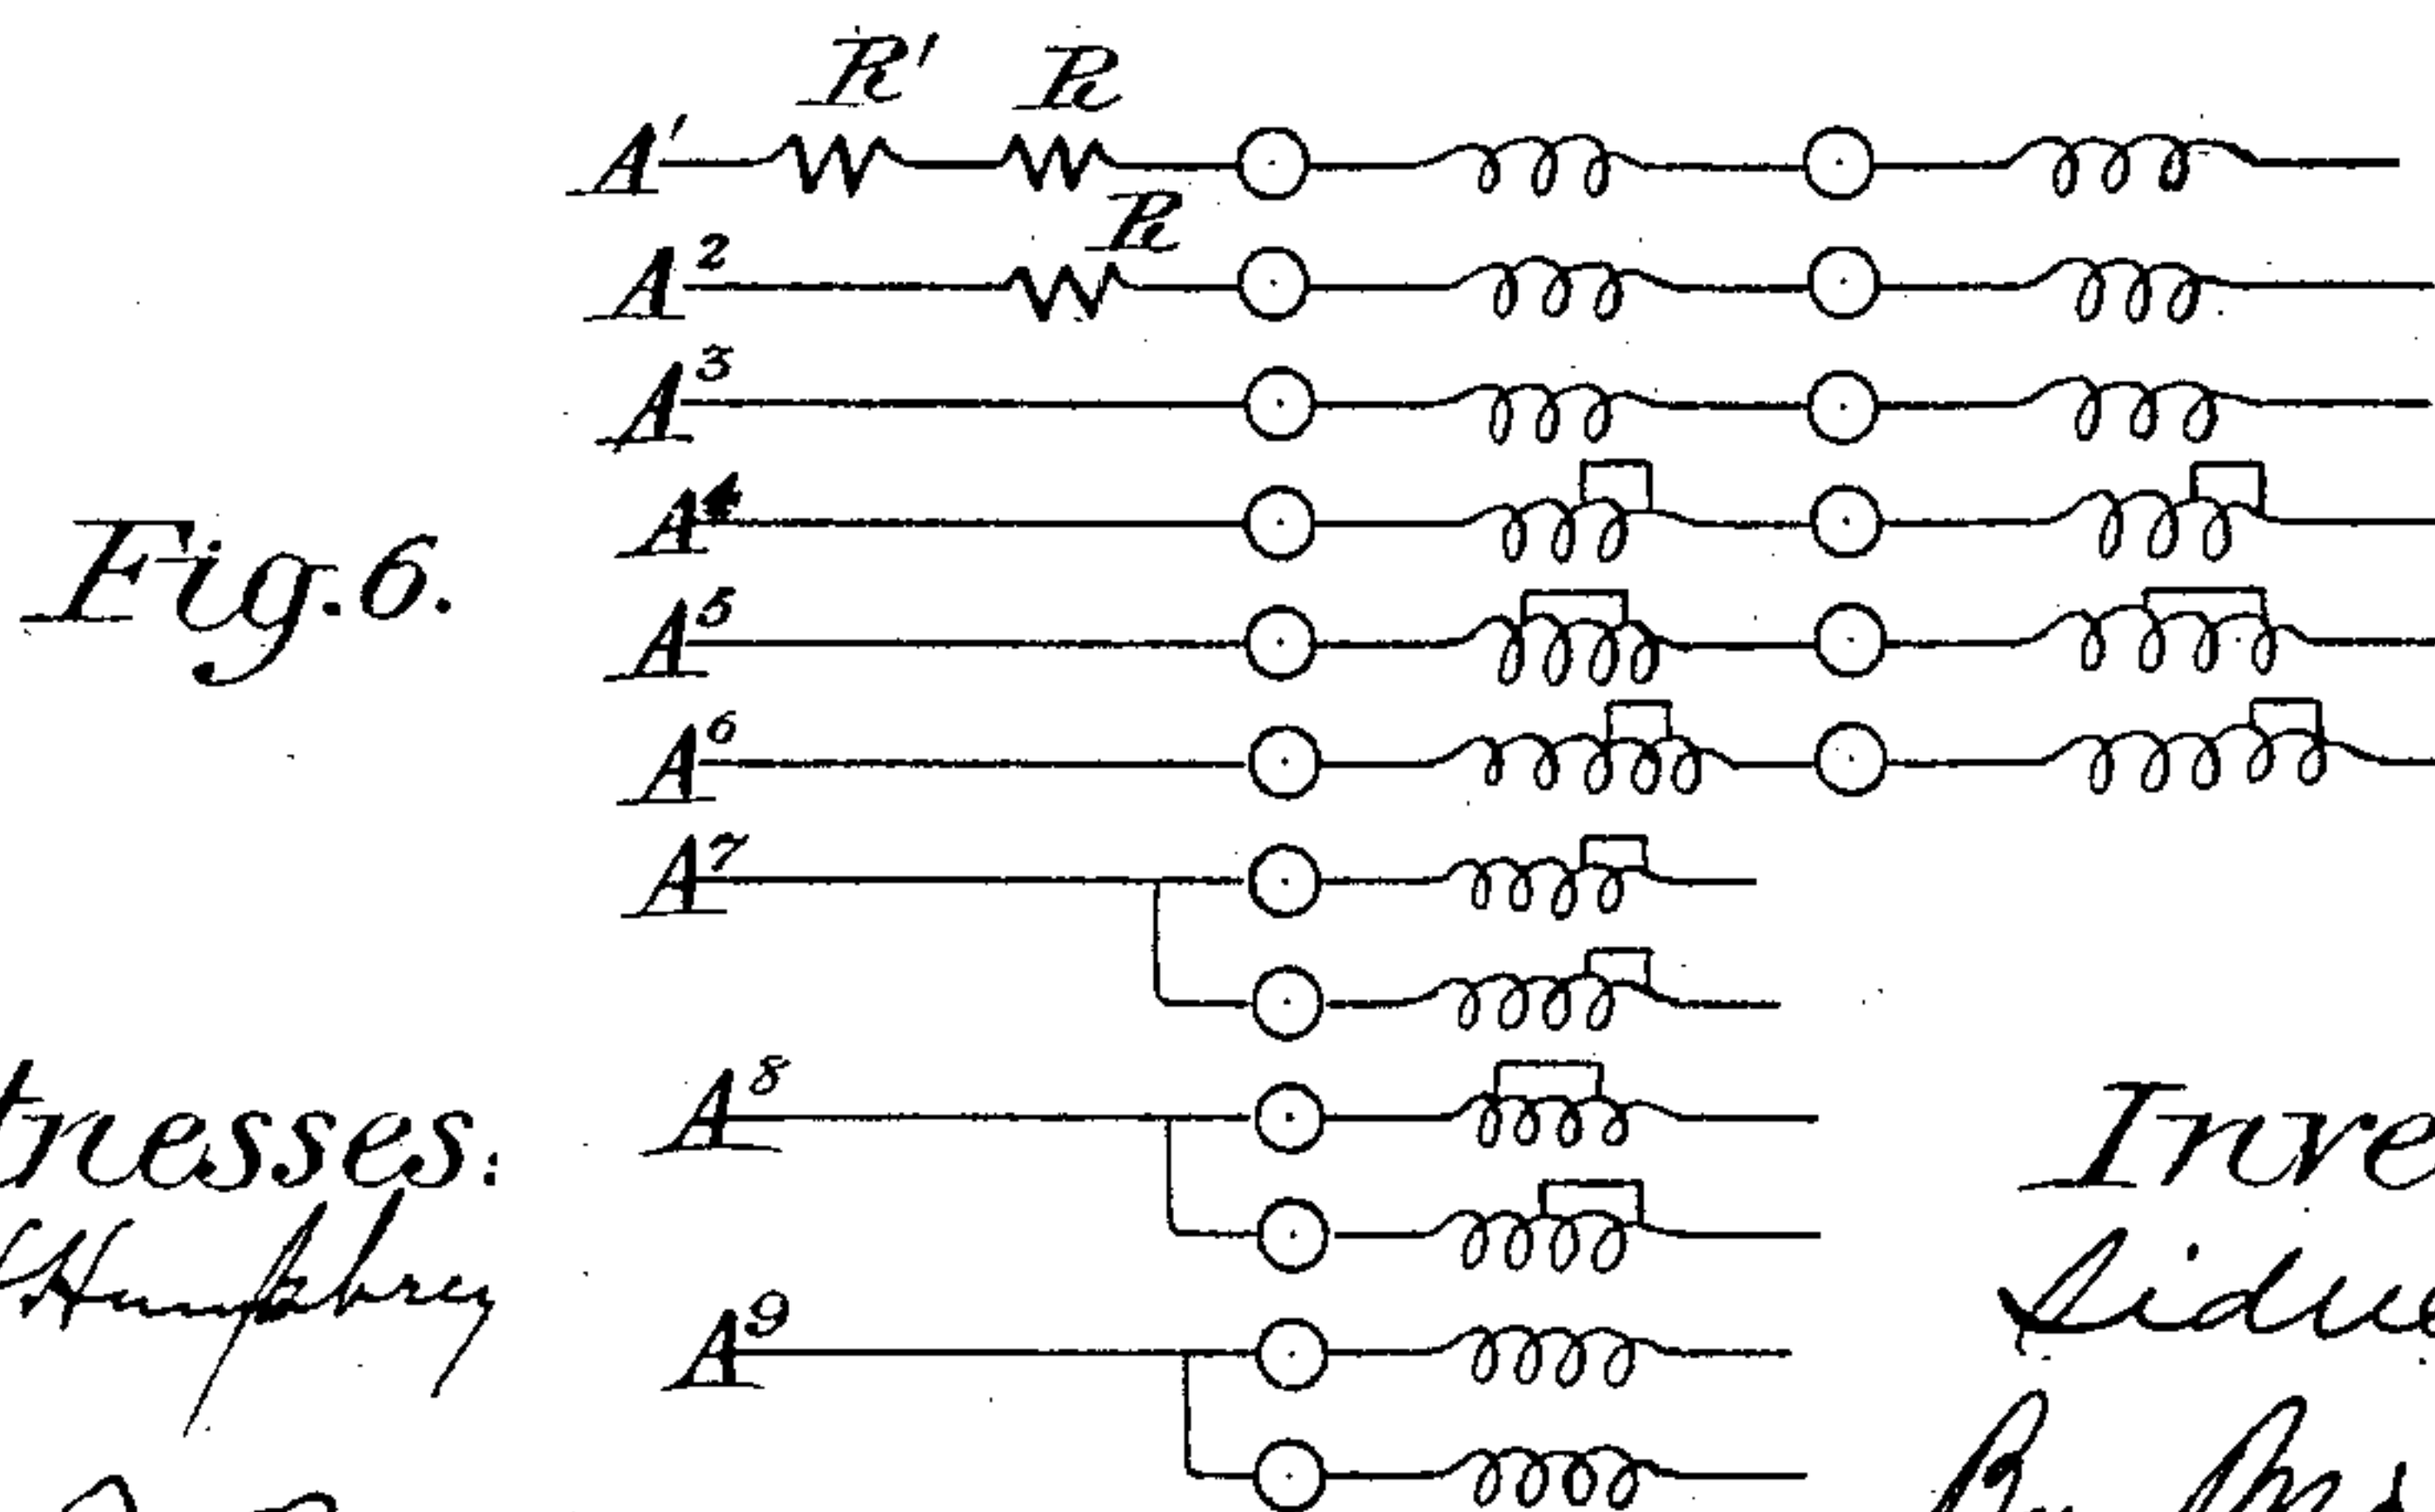 R' R
A'
R
A²
A³
A⁴
Fig. 6.
A⁵
A⁶
A⁷
A⁸
tnesses:
Inve
Humphrey
Sidne
A⁹